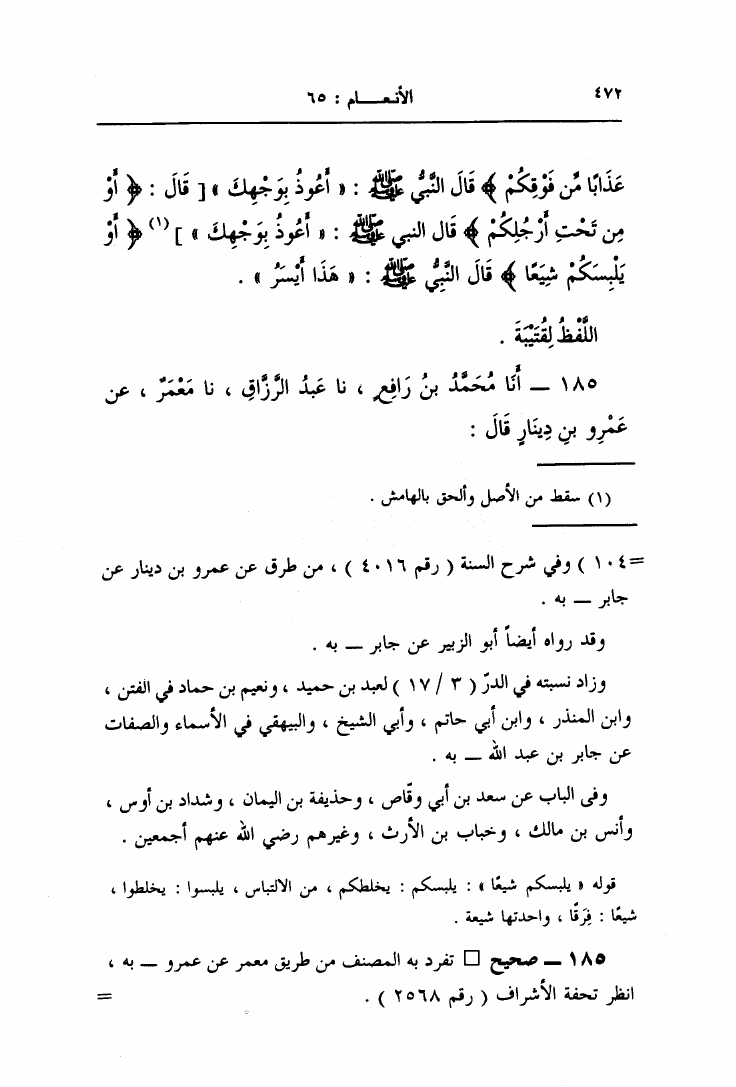 ٤٧٢
الأنعـــام : ٦٥
عَذَابًا مِّن فَوْقِكُمْ ﴾ قَالَ النَّبِيُّ ﷺ : « أَعُوذُ بِوَجْهِكَ » [ قَالَ : ﴿ أَوْ
مِن تَحْتِ أَرْجُلِكُمْ ﴾ قَال النبي ﷺ : « أَعُوذُ بِوَجْهِكَ » ] (١) ﴿ أَوْ
يَلْبِسَكُمْ شِيَعًا ﴾ قَالَ النَّبِيُّ ﷺ : « هَذَا أَيْسَرُ » .
اللَّفْظُ لِقُتَيْبَةَ .
١٨٥ ــ أَنَا مُحَمَّدُ بنُ رَافِعٍ ، نا عَبدُ الرَّزَّاقِ ، نا مَعْمَرٌ ، عن
عَمْرِو بنِ دِينَارٍ قَالَ :
(١) سقط من الأصل وألحق بالهامش .
=١٠٤ ) وفي شرح السنة ( رقم ٤٠١٦ ) ، من طرق عن عمرو بن دينار عن
جابر ــ به .
وقد رواه أيضاً أبو الزبير عن جابر ــ به .
وزاد نسبته في الدرّ ( ٣ / ١٧ ) لعبد بن حميد ، ونعيم بن حماد في الفتن ،
وابن المنذر ، وابن أبي حاتم ، وأبي الشيخ ، والبيهقي في الأسماء والصفات
عن جابر بن عبد الله ــ به .
وفى الباب عن سعد بن أبي وقّاص ، وحذيفة بن اليمان ، وشداد بن أوس ،
وأنس بن مالك ، وخباب بن الأرث ، وغيرهم رضي الله عنهم أجمعين .
قوله « يلبسكم شيعًا » : يلبسكم : يخلطكم ، من الالتباس ، يلبسوا : يخلطوا ،
شيعًا : فِرَقًا ، واحدتها شيعة .
١٨٥ ــ صحيح □ تفرد به المصنف من طريق معمر عن عمرو ــ به ،
انظر تحفة الأشراف ( رقم ٢٥٦٨ ) .
=